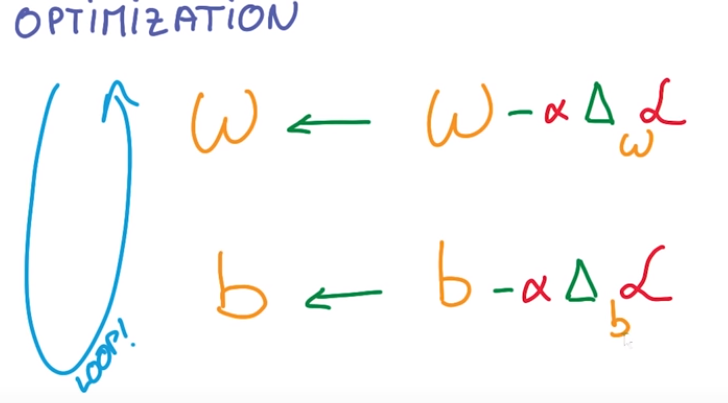 OPTIMIZATION
w ← w - α Δ_w ℒ
b ← b - α Δ_b ℒ
LOOP!